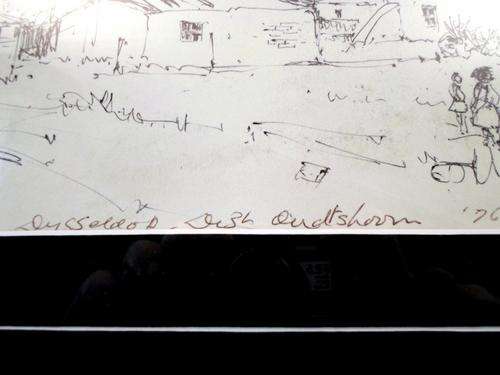 Dysseldorp. Dist Oudtshoorn